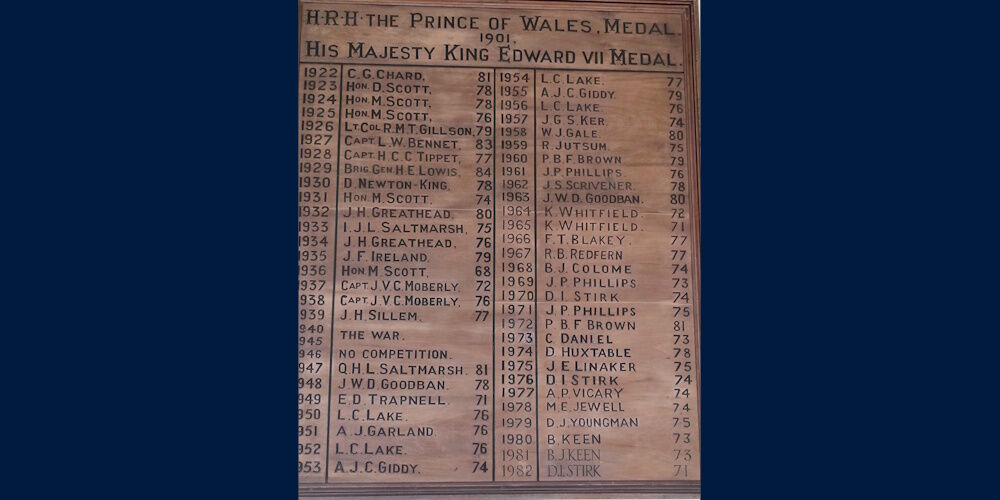 H·R·H· THE PRINCE OF WALES, MEDAL.
1901,
HIS MAJESTY KING EDWARD VII MEDAL.
1922 C.G. CHARD, 81
1923 HON. D. SCOTT, 78
1924 HON. M. SCOTT, 78
1925 HON. M. SCOTT, 76
1926 LT. COL R.M.T. GILLSON, 79
1927 CAPT. L.W. BENNET, 83
1928 CAPT. H.C.C TIPPET, 77
1929 BRIG. GEN H.E. LOWIS, 84
1930 D. NEWTON-KING, 78
1931 HON. M. SCOTT, 74
1932 J.H. GREATHEAD, 80
1933 I.J.L. SALTMARSH, 75
1934 J.H. GREATHEAD, 76
1935 J.F. IRELAND. 79
1936 HON M. SCOTT, 68
1937 CAPT. J.V.C. MOBERLY, 72
938 CAPT. J.V.C. MOBERLY, 76
939 J.H. SILLEM, 77
940
945 THE WAR.
946 NO COMPETITION.
947 Q.H.L. SALTMARSH. 81
948 J.W.D. GOODBAN. 78
949 E.D. TRAPNELL. 71
950 L.C. LAKE. 76
951 A.J. GARLAND. 76
952 L.C. LAKE. 76
953 A.J.C. GIDDY. 74
1954 L.C. LAKE. 77
1955 A.J.C. GIDDY. 79
1956 L.C. LAKE. 76
1957 J.G.S. KER. 74
1958 W.J. GALE. 80
1959 R. JUTSUM. 75
1960 P.B.F. BROWN 79
1961 J.P. PHILLIPS. 76
1962 J.S. SCRIVENER. 78
1963 J.W.D. GOODBAN. 80
1964 K. WHITFIELD. 72
1965 K. WHITFIELD. 71
1966 F.T. BLAKEY. 77
1967 R.B. REDFERN 77
1968 B.J. COLOME 74
1969 J.P. PHILLIPS 73
1970 D.I. STIRK 74
1971 J.P. PHILLIPS 75
1972 P.B.F BROWN 81
1973 C. DANIEL 73
1974 D. HUXTABLE 78
1975 J.E LINAKER 75
1976 D.I STIRK 74
1977 A.P. VICARY 74
1978 M.E. JEWELL 74
1979 D.J. YOUNGMAN 75
1980 B. KEEN 73
1981 B.J. KEEN 73
1982 D.I. STIRK 71